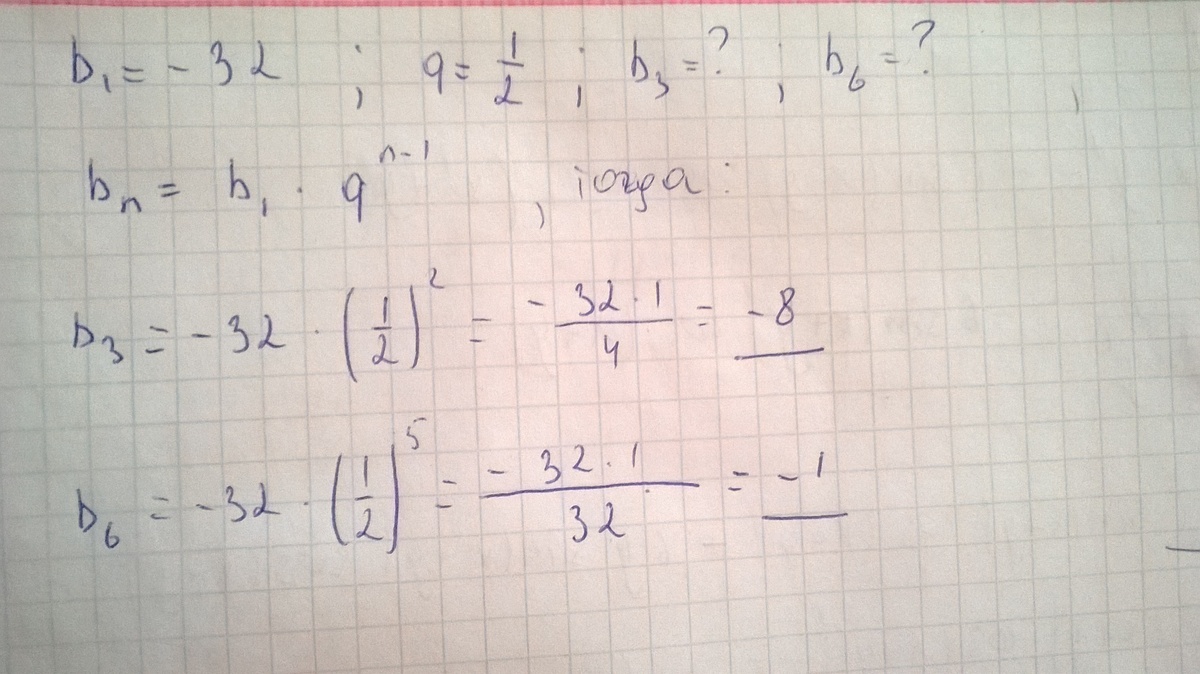 b₁ = - 32 ; q = 1/2 ; b₃ = ? ; b₆ = ?
bₙ = b₁ · qⁿ⁻¹ , тогда :
b₃ = - 32 · (1/2)² = - 32 · 1 / 4 = - 8
b₆ = - 32 · (1/2)⁵ = - 32 · 1 / 32 = - 1